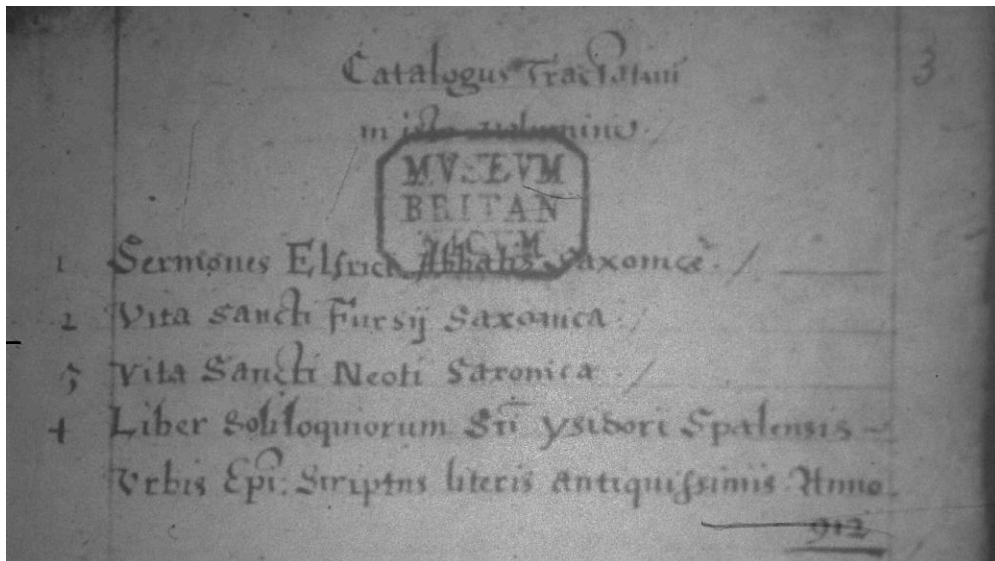 Catalogus Tractatuū 3
in isto volumine.
MVSEVM
BRITAN
NICVM
1 Sermones Elfrici Abbatis Saxonicè. /
2 Vita Sancti Fursij Saxonica. /
3 Vita Sancti Neoti Saxonica. /
4 Liber Soliloquiorum Sti ysidori Spalensis
Vrbis Epi: Scriptus literis antiquissimis Anno.
912